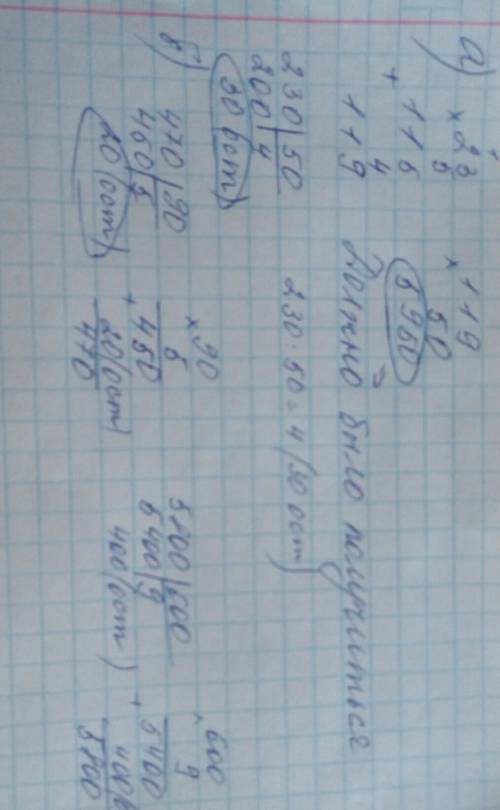 а) ×23 ×119
5 50
+115 5950
4
119 Должно было получиться
230|50 230:50=4 (30 ост)
200|4
30 (ост)
б) 470|90 ×90 5800|600 ×600
450|5 5 5400|9 9
20 (ост) +450 400 (ост) +5400
20 (ост) 400
470 5800